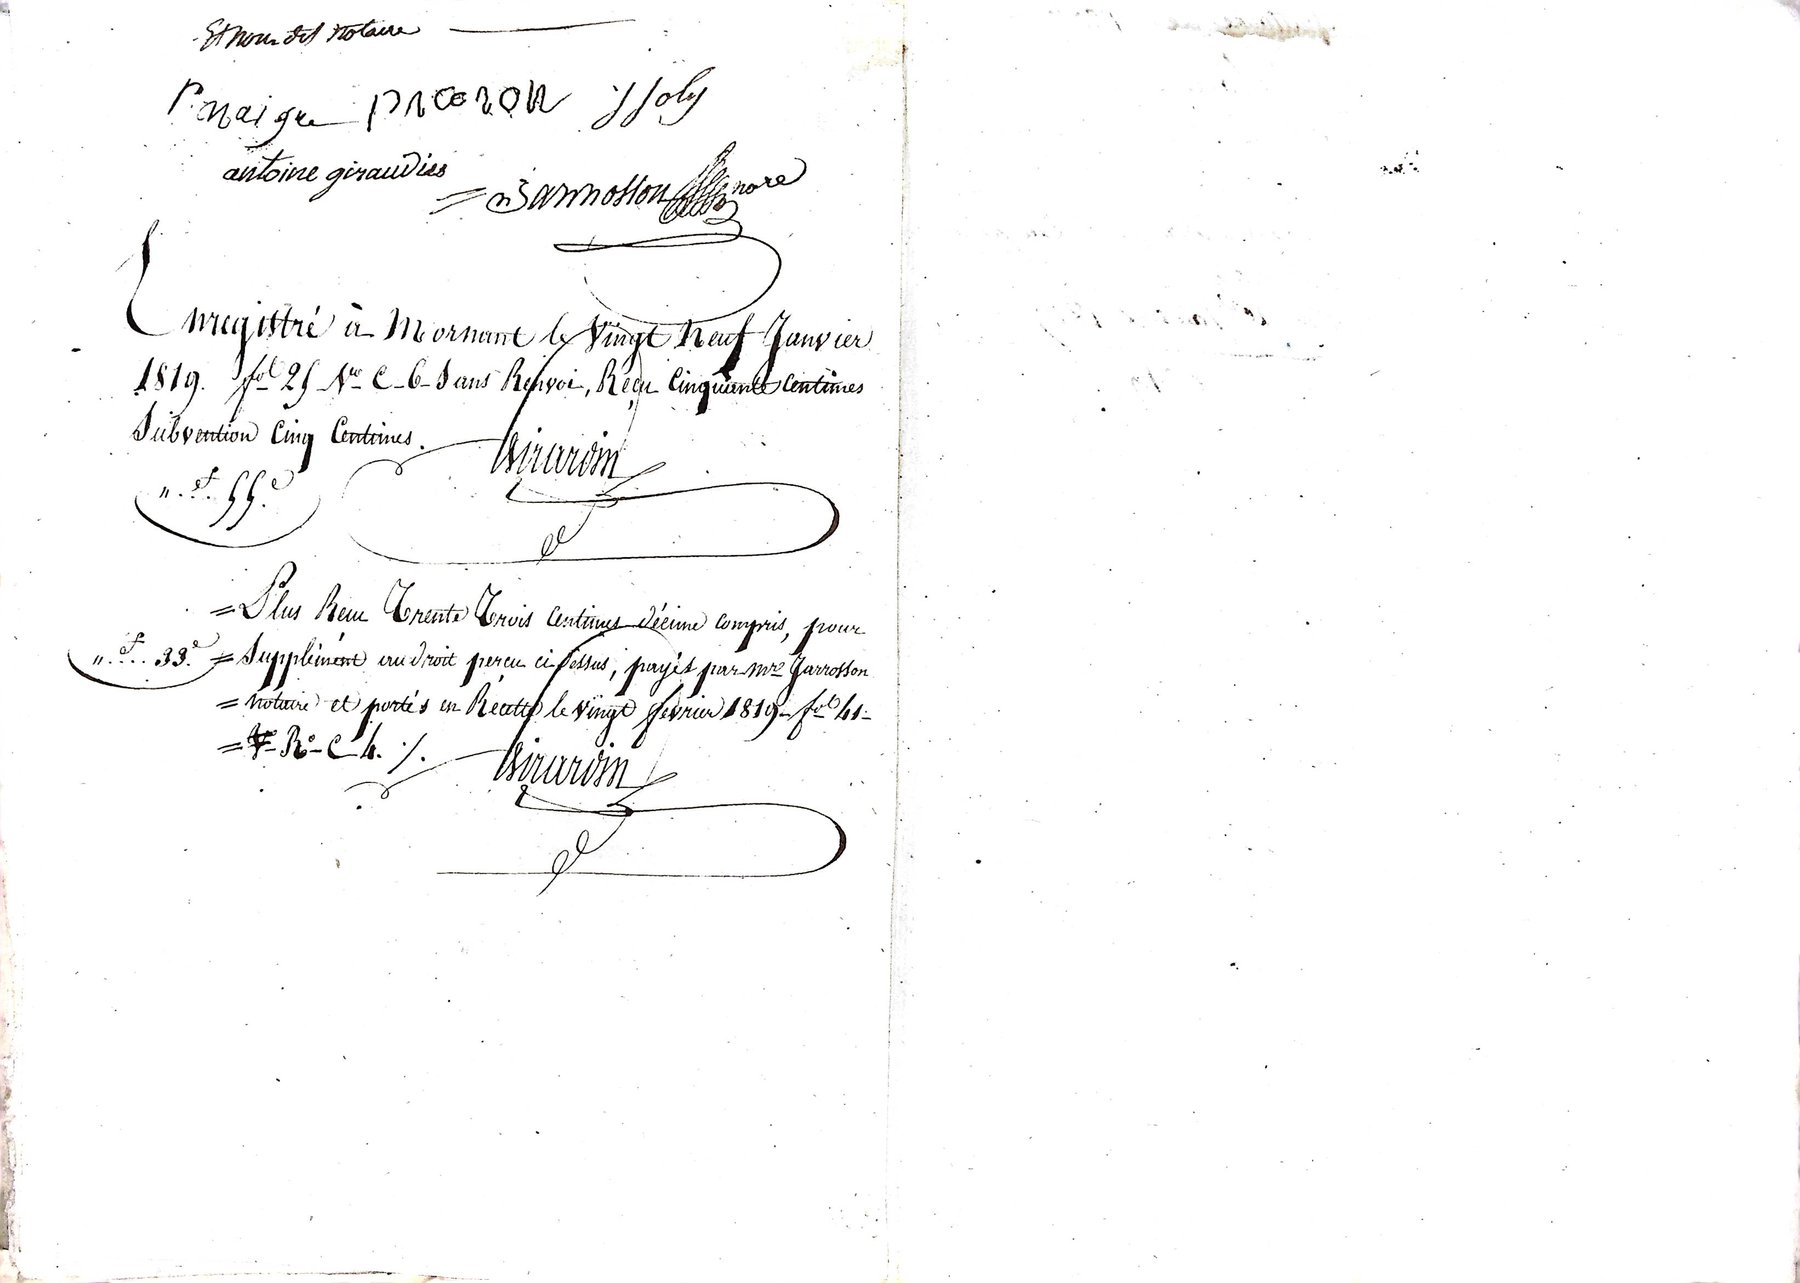 Et nous dit notaire
P. naigre PRORON JJ Joly
antoine giraudier
= Jarrosson nore
Enregistré à Mornant le Vingt Neuf Janvier
1819. fol 25 Vo C 6 Sans Renvoi, Reçu Cinquante Centimes
Subvention Cinq Centimes.
Girardin
".f. 55.c
= Plus Recu Trente Trois Centimes décime compris, pour
".f... 33.c = Supplément au droit perçu ci dessus, payés par mre Jarrosson
= notaire et portés en Recette le vingt fevrier 1819 fol 41
= Ro C 4. /.
Girardin